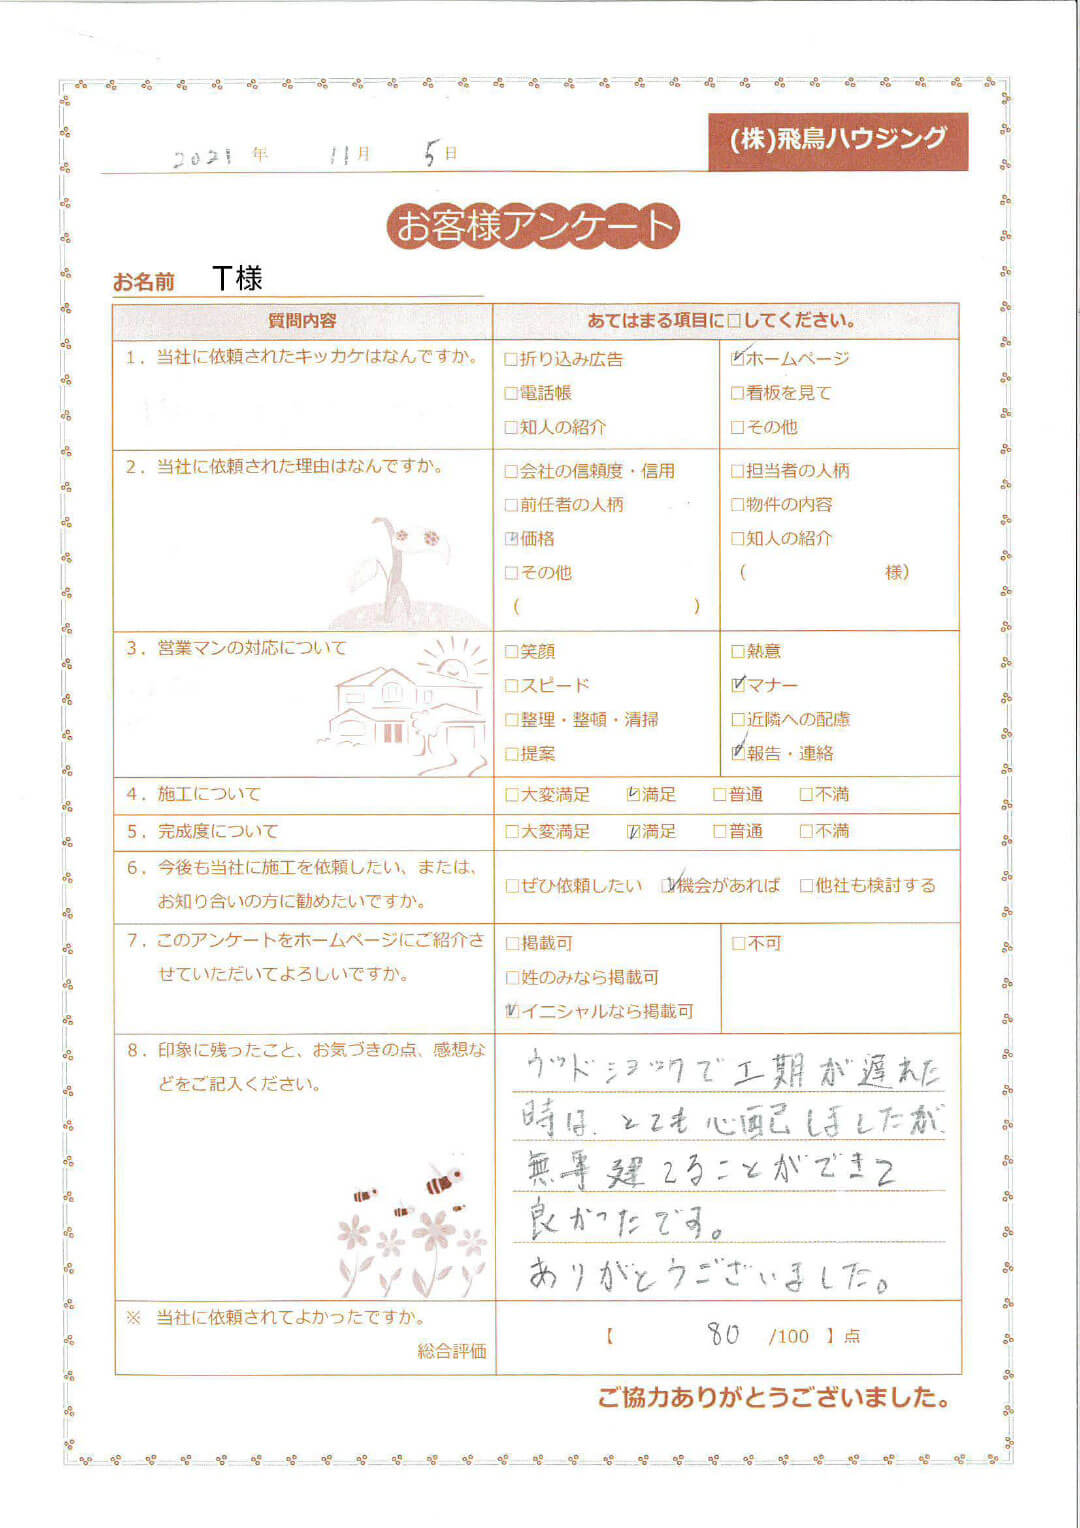 (株)飛鳥ハウジング
2021 年 11 月 5 日
お客様アンケート
お名前 T様
質問内容 あてはまる項目に□してください。
1．当社に依頼されたキッカケはなんですか。
□折り込み広告 ☑ホームページ
□電話帳 □看板を見て
□知人の紹介 □その他
2．当社に依頼された理由はなんですか。
□会社の信頼度・信用 □担当者の人柄
□前任者の人柄 □物件の内容
☑価格 □知人の紹介
□その他 （ 様）
（ ）
3．営業マンの対応について
□笑顔 □熱意
□スピード ☑マナー
□整理・整頓・清掃 □近隣への配慮
□提案 ☑報告・連絡
4．施工について □大変満足 ☑満足 □普通 □不満
5．完成度について □大変満足 ☑満足 □普通 □不満
6．今後も当社に施工を依頼したい、または、
お知り合いの方に勧めたいですか。
□ぜひ依頼したい ☑機会があれば □他社も検討する
7．このアンケートをホームページにご紹介さ
せていただいてよろしいですか。
□掲載可 □不可
□姓のみなら掲載可
☑イニシャルなら掲載可
8．印象に残ったこと、お気づきの点、感想な
どをご記入ください。
ウッドショックで工期が遅れた
時は、とても心配しましたが、
無事建てることができて
良かったです。
ありがとうございました。
※ 当社に依頼されてよかったですか。
総合評価
【 80 /100 】点
ご協力ありがとうございました。